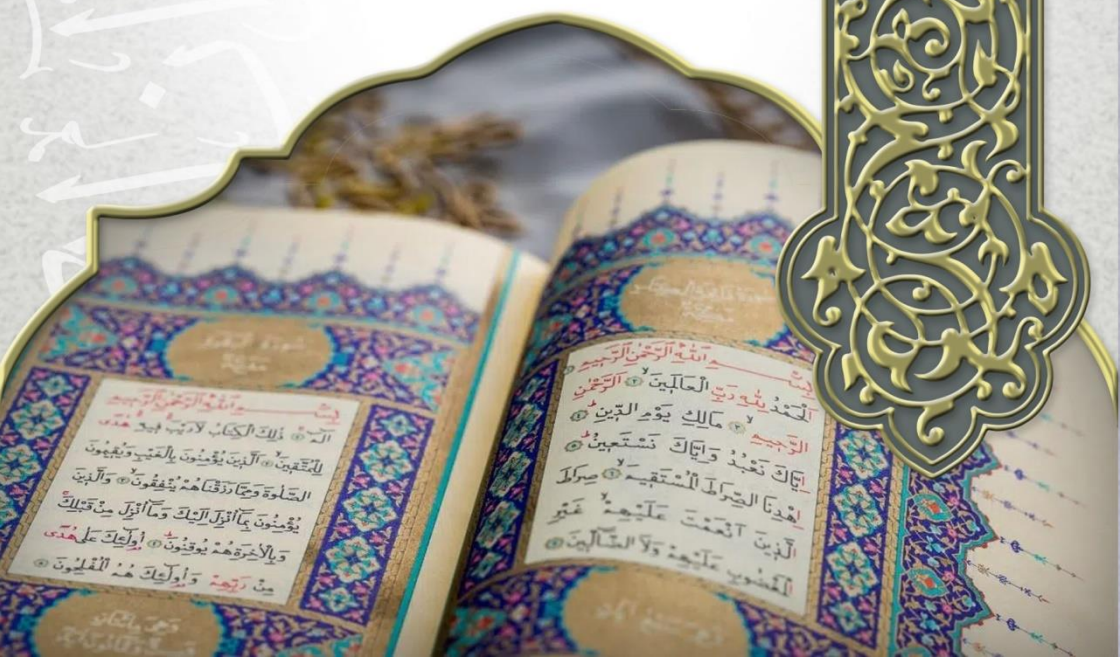 بِسْمِ اللّٰهِ الرَّحْمٰنِ الرَّحِيمِ
اَلْحَمْدُ لِلّٰهِ رَبِّ الْعَالَمِينَۙ ﴿٢﴾ اَلرَّحْمٰنِ
الرَّحِيمِۙ ﴿٣﴾ مَالِكِ يَوْمِ الدِّينِۜ ﴿٤﴾
اِيَّاكَ نَعْبُدُ وَاِيَّاكَ نَسْتَعِينُۜ ﴿٥﴾
اِهْدِنَا الصِّرَاطَ الْمُسْتَقِيمَۙ ﴿٦﴾ صِرَاطَ
الَّذِينَ اَنْعَمْتَ عَلَيْهِمْۙ غَيْرِ
الْمَغْضُوبِ عَلَيْهِمْ وَلَا الضَّٓالِّينَ ﴿٧﴾
سُورَةُ الْبَقَرَةِ
بِسْمِ اللّٰهِ الرَّحْمٰنِ الرَّحِيمِ
الٓمٓۜ ﴿١﴾ ذٰلِكَ الْكِتَابُ لَا رَيْبَۚ فِيهِۚ هُدًى
لِلْمُتَّقِينَۙ ﴿٢﴾ اَلَّذِينَ يُؤْمِنُونَ بِالْغَيْبِ وَيُقِيمُونَ
الصَّلٰوةَ وَمِمَّا رَزَقْنَاهُمْ يُنْفِقُونَۙ ﴿٣﴾ وَالَّذِينَ
يُؤْمِنُونَ بِمَٓا اُنْزِلَ اِلَيْكَ وَمَٓا اُنْزِلَ مِنْ قَبْلِكَۚ
وَبِالْاٰخِرَةِ هُمْ يُوقِنُونَۜ ﴿٤﴾ اُو۬لٰٓئِكَ عَلٰى هُدًى
مِنْ رَبِّهِمْ وَاُو۬لٰٓئِكَ هُمُ الْمُفْلِحُونَ ﴿٥﴾